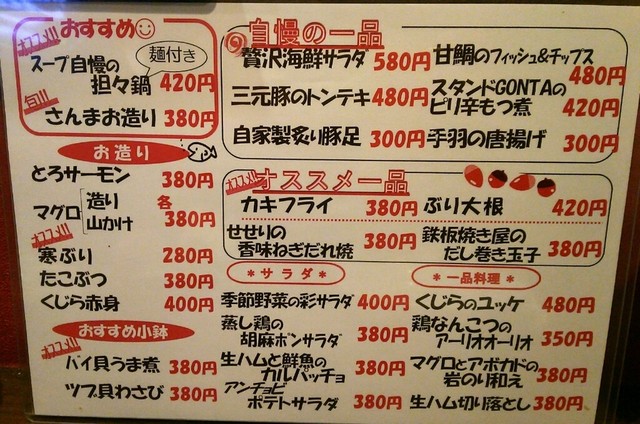 オススメ!! おすすめ
麺付き
スープ自慢の
担々鍋 420円
旬!!
さんまお造り 380円
お造り
とろサーモン 380円
マグロ 造り 各
山かけ 380円
オススメ!!
寒ぶり 280円
たこぶつ 380円
くじら赤身 400円
おすすめ小鉢
オススメ!!
バイ貝うま煮 380円
ツブ貝わさび 380円
自慢の一品
贅沢海鮮サラダ 580円
三元豚のトンテキ 480円
自家製炙り豚足 300円
甘鯛のフィッシュ&チップス
480円
スタンドGONTAの
ピリ辛もつ煮 420円
手羽の唐揚げ 300円
オススメ!! オススメ一品
カキフライ 380円
ぶり大根 420円
せせりの
香味ねぎだれ焼 380円
鉄板焼き屋の
だし巻き玉子 380円
*サラダ*
季節野菜の彩サラダ 400円
蒸し鶏の
胡麻ポンサラダ 380円
生ハムと鮮魚の
カルパッチョ 380円
アンチョビ
ポテトサラダ 380円
*一品料理*
くじらのユッケ 480円
鶏なんこつの
アーリオオーリオ 350円
マグロとアボカドの
岩のり和え 380円
生ハム切り落とし 380円